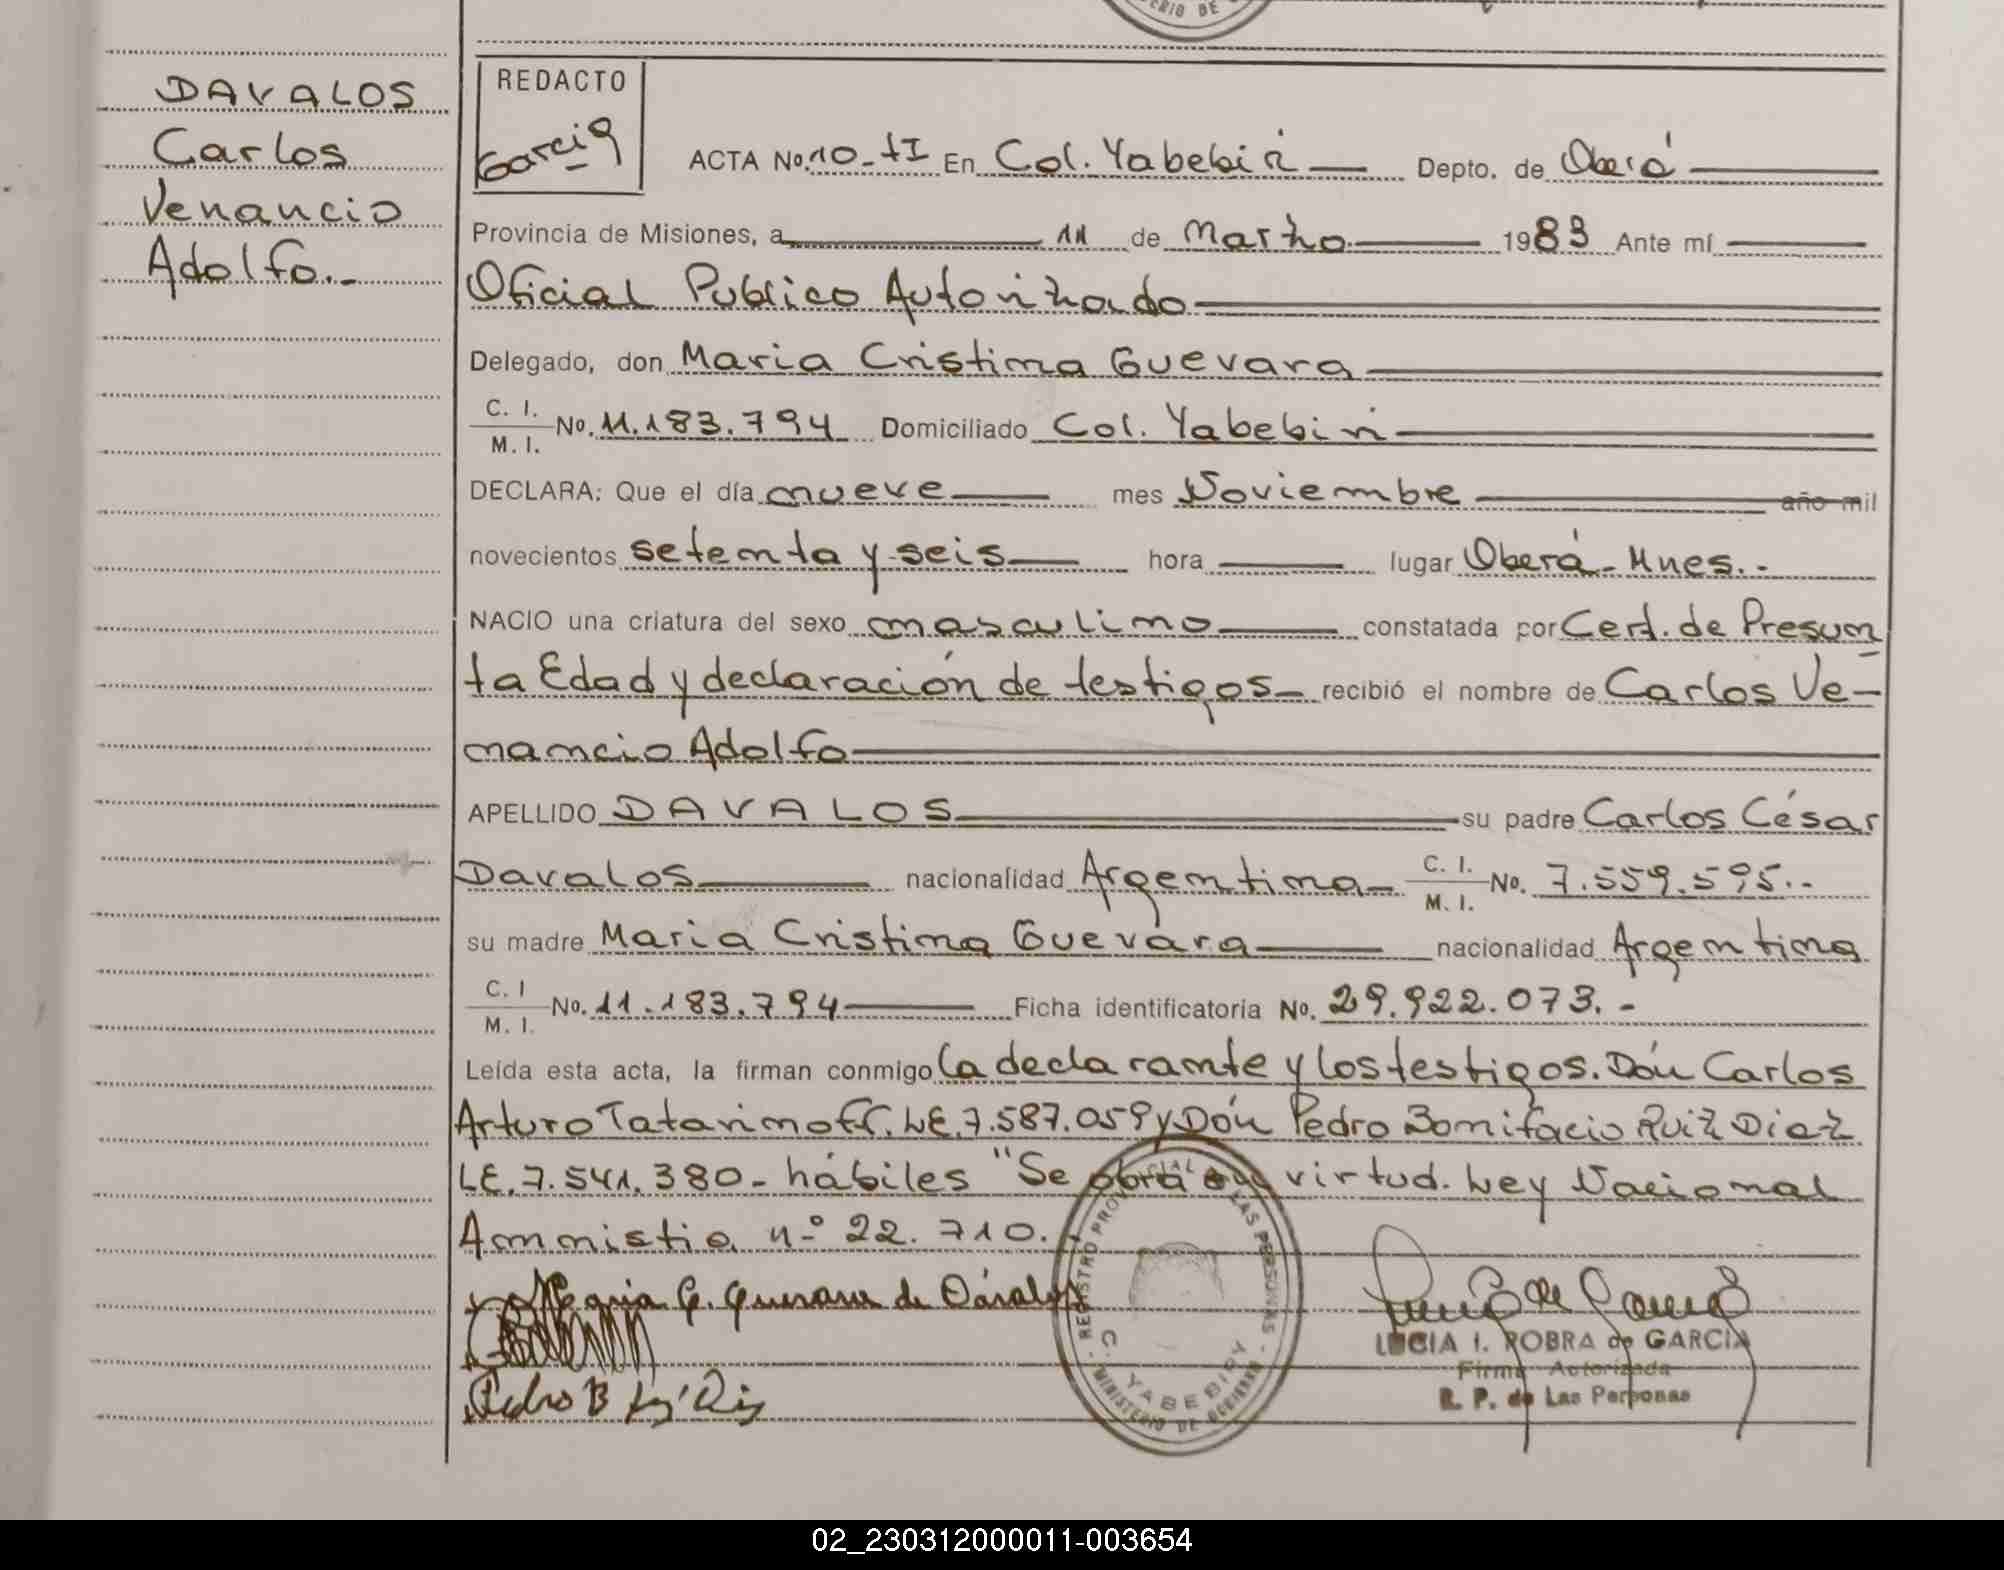 DAVALOS
Carlos
Venancio
Adolfo.-
REDACTO
Garcia
ACTA No. 10-tI En Col. Yabebiri Depto. de Oberá
Provincia de Misiones, a 11 de Marzo 1983 Ante mí
Oficial Publico Autorizado
Delegado, don Maria Cristina Guevara
C. I.
M. I. No. 11.183.794 Domiciliado Col. Yabebiri
DECLARA: Que el día nueve mes Noviembre año mil
novecientos setenta y seis hora lugar Oberá - Mnes. -
NACIO una criatura del sexo masculino constatada por Cert. de Presun
ta Edad y declaración de testigos- recibió el nombre de Carlos Ve-
nancio Adolfo
APELLIDO DAVALOS su padre Carlos César
Davalos nacionalidad Argentina- C. I.
M. I. No. 7.559.595.-
su madre Maria Cristina Guevara nacionalidad Argentina
C. I
M. I. No. 11.183.794 Ficha identificatoria No. 29.922.073.-
Leída esta acta, la firman conmigo la declarante y los testigos. Dón Carlos
Arturo Tatarinoff. LE. 7.587.059 y Dón Pedro Bonifacio Ruiz Diaz
LE. 7.541.380- hábiles "Se obra en virtud. Ley Nacional
Amnistia n° 22.710.
Maria C. Guevara de Dávalos
Pedro B Ruiz Diaz
REGISTRO PROVINCIAL DE LAS PERSONAS
C. YABEBIRY
MINISTERIO DE GOBIERNO
LUCIA I. ROBRA de GARCIA
Firma Autorizada
R. P. de Las Personas
02_230312000011-003654